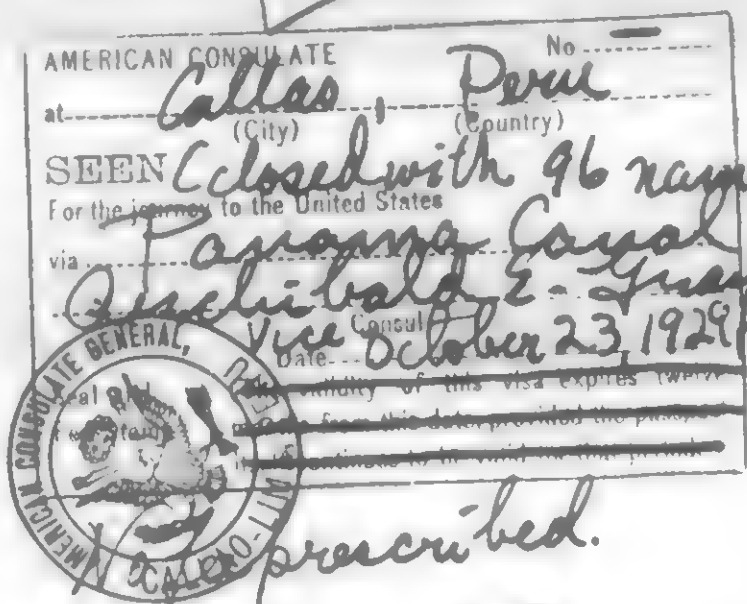 AMERICAN CONSULATE No
at Callao, Peru
(City) (Country)
SEEN Closed with 96 nam
For the journey to the United States
via Panama Canal
Archibald E.
Vice Consul
Date October 23, 1929
validity of this visa expires twelve
from this date provided the passport
continues to be valid for that period
AMERICAN CONSULATE GENERAL, CALLAO-LIMA
prescribed.